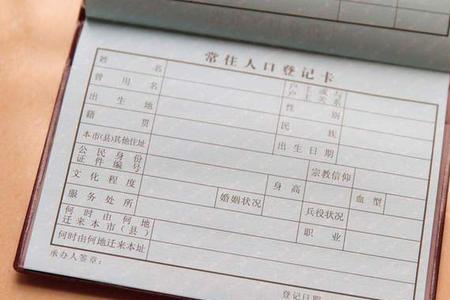 常住人口登记卡
姓名 户主或与户主关系
曾用名 性别
出生地 民族
籍贯 出生日期
本市(县)其他住址 宗教信仰
公民身份证件编号 身高 血型
文化程度 婚姻状况 兵役状况
服务处所 职业
何时由何地迁来本市(县)
何时由何地迁来本址
承办人签章: 登记日期